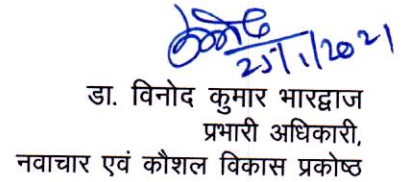 25/1/2021
डा. विनोद कुमार भारद्वाज
प्रभारी अधिकारी,
नवाचार एवं कौशल विकास प्रकोष्ठ